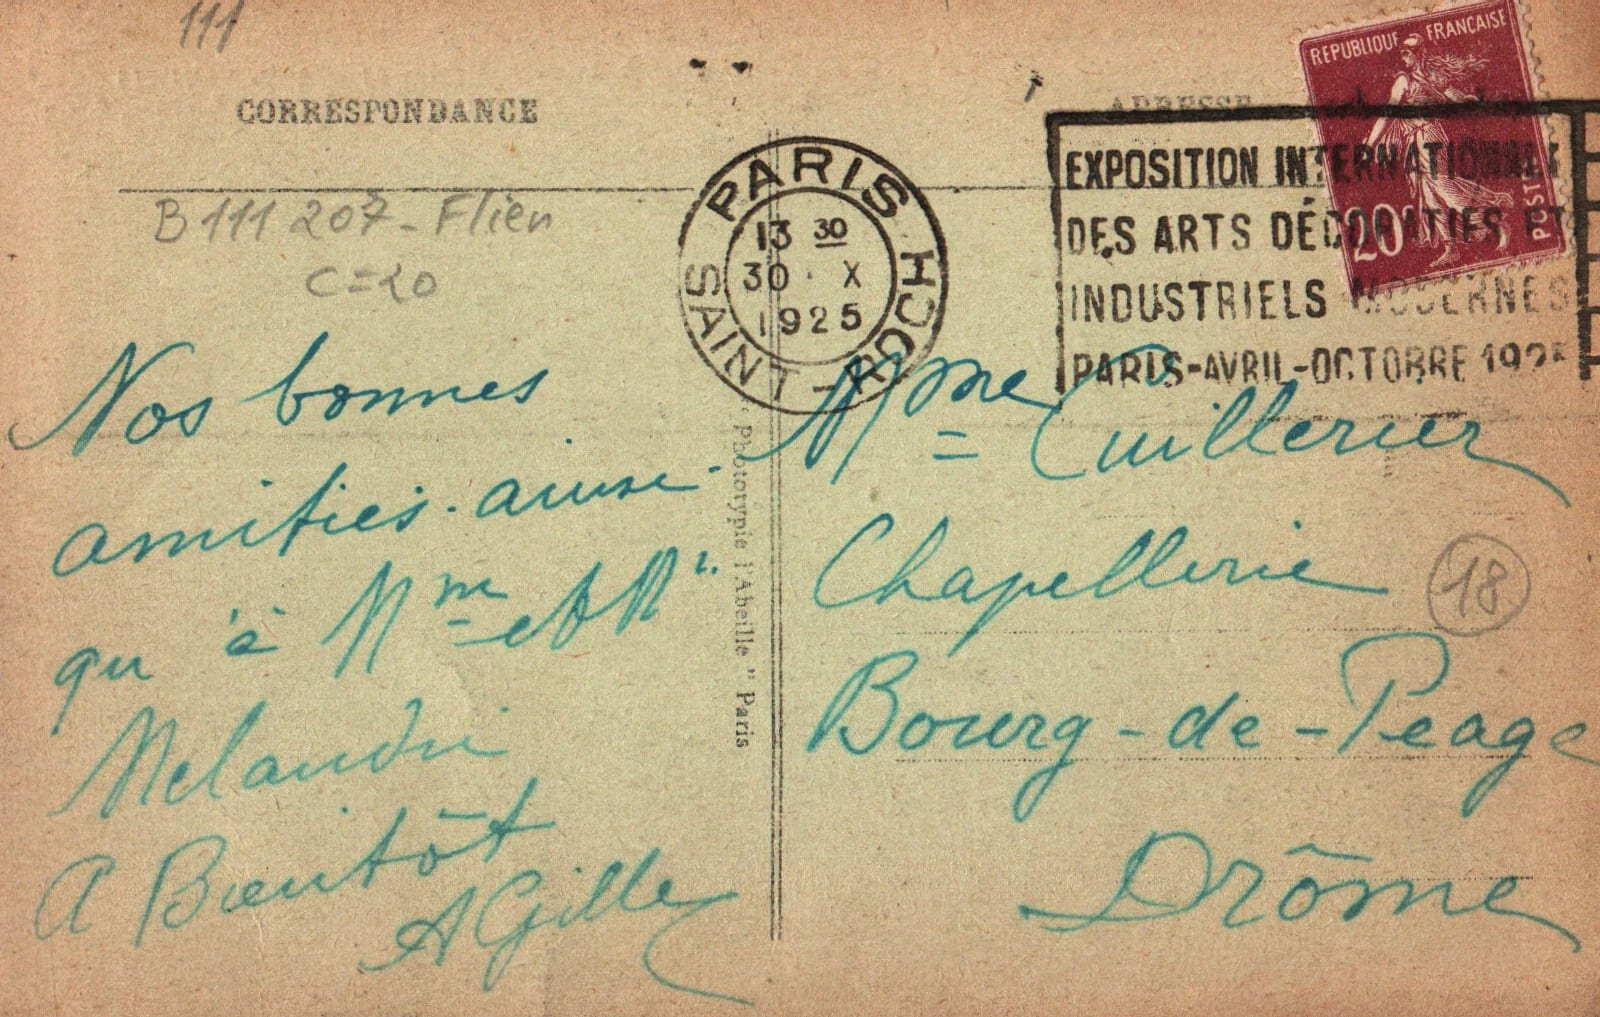 111
CORRESPONDANCE
ADRESSE
REPUBLIQUE FRANÇAISE
20c
POST
PARIS
SAINT-ROCH
13 30
30 · X
1925
EXPOSITION INTERNATIONALE
DES ARTS DÉCORATIFS ET
INDUSTRIELS MODERNES
PARIS-AVRIL-OCTOBRE 1925
B 111 207 - Flien
C=20
Nos bonnes
amitiés. ainsi
qu'à Mme et
Melandri
A Bientôt
A Gille
" Phototypie l'Abeille " Paris
Mme Cuillerier
Chapellerie
18
Bourg-de-Peage
Drôme